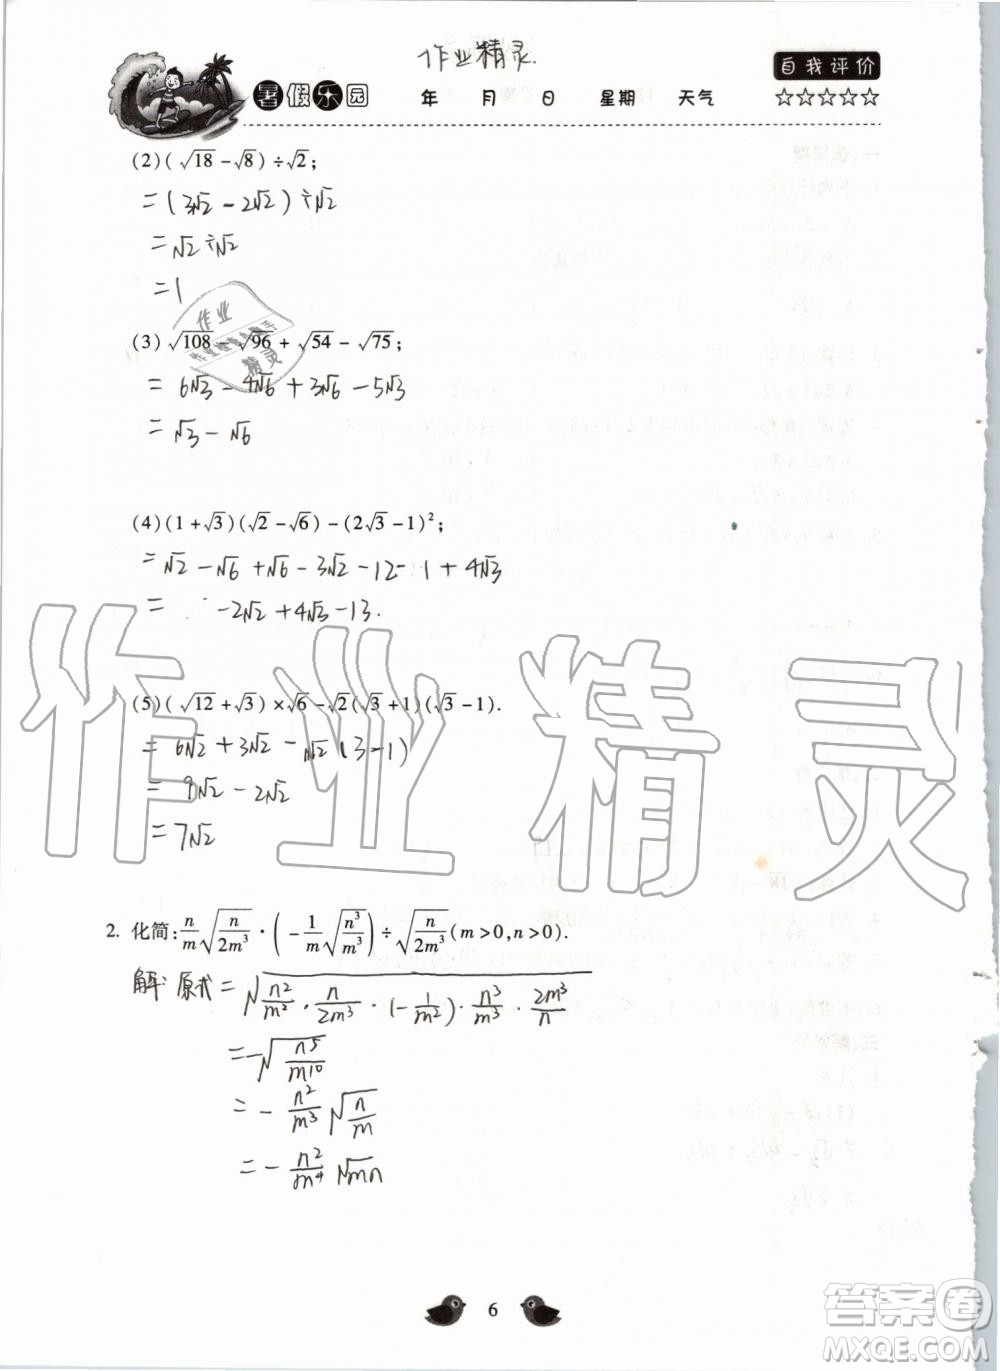 作业精灵.
自我评价
暑假乐园 年 月 日 星期 天气 ☆☆☆☆☆
(2)(√18 - √8) ÷ √2;
= (3√2 - 2√2) ÷ √2
= √2 ÷ √2
= 1
作业
精灵
(3) √108 - √96 + √54 - √75;
= 6√3 - 4√6 + 3√6 - 5√3
= √3 - √6
(4)(1 + √3)(√2 - √6) - (2√3 - 1)²;
= √2 - √6 + √6 - 3√2 - 12 - 1 + 4√3
= -2√2 + 4√3 - 13.
作业精灵
(5)(√12 + √3) × √6 - √2(√3 + 1)(√3 - 1).
= 6√2 + 3√2 - √2 (3 - 1)
= 9√2 - 2√2
= 7√2
2. 化简: n/m √(n/2m³) · (-1/m √(n³/m³)) ÷ √(n/2m³) (m > 0, n > 0).
解: 原式 = √(n²/m² · n/2m³ · (-1/m²) · n³/m³ · 2m³/n)
= -√(n⁵/m¹⁰)
= - n²/m³ √(n/m)
= - n²/m⁴ √mn
6
答案圈
MXQE.COM